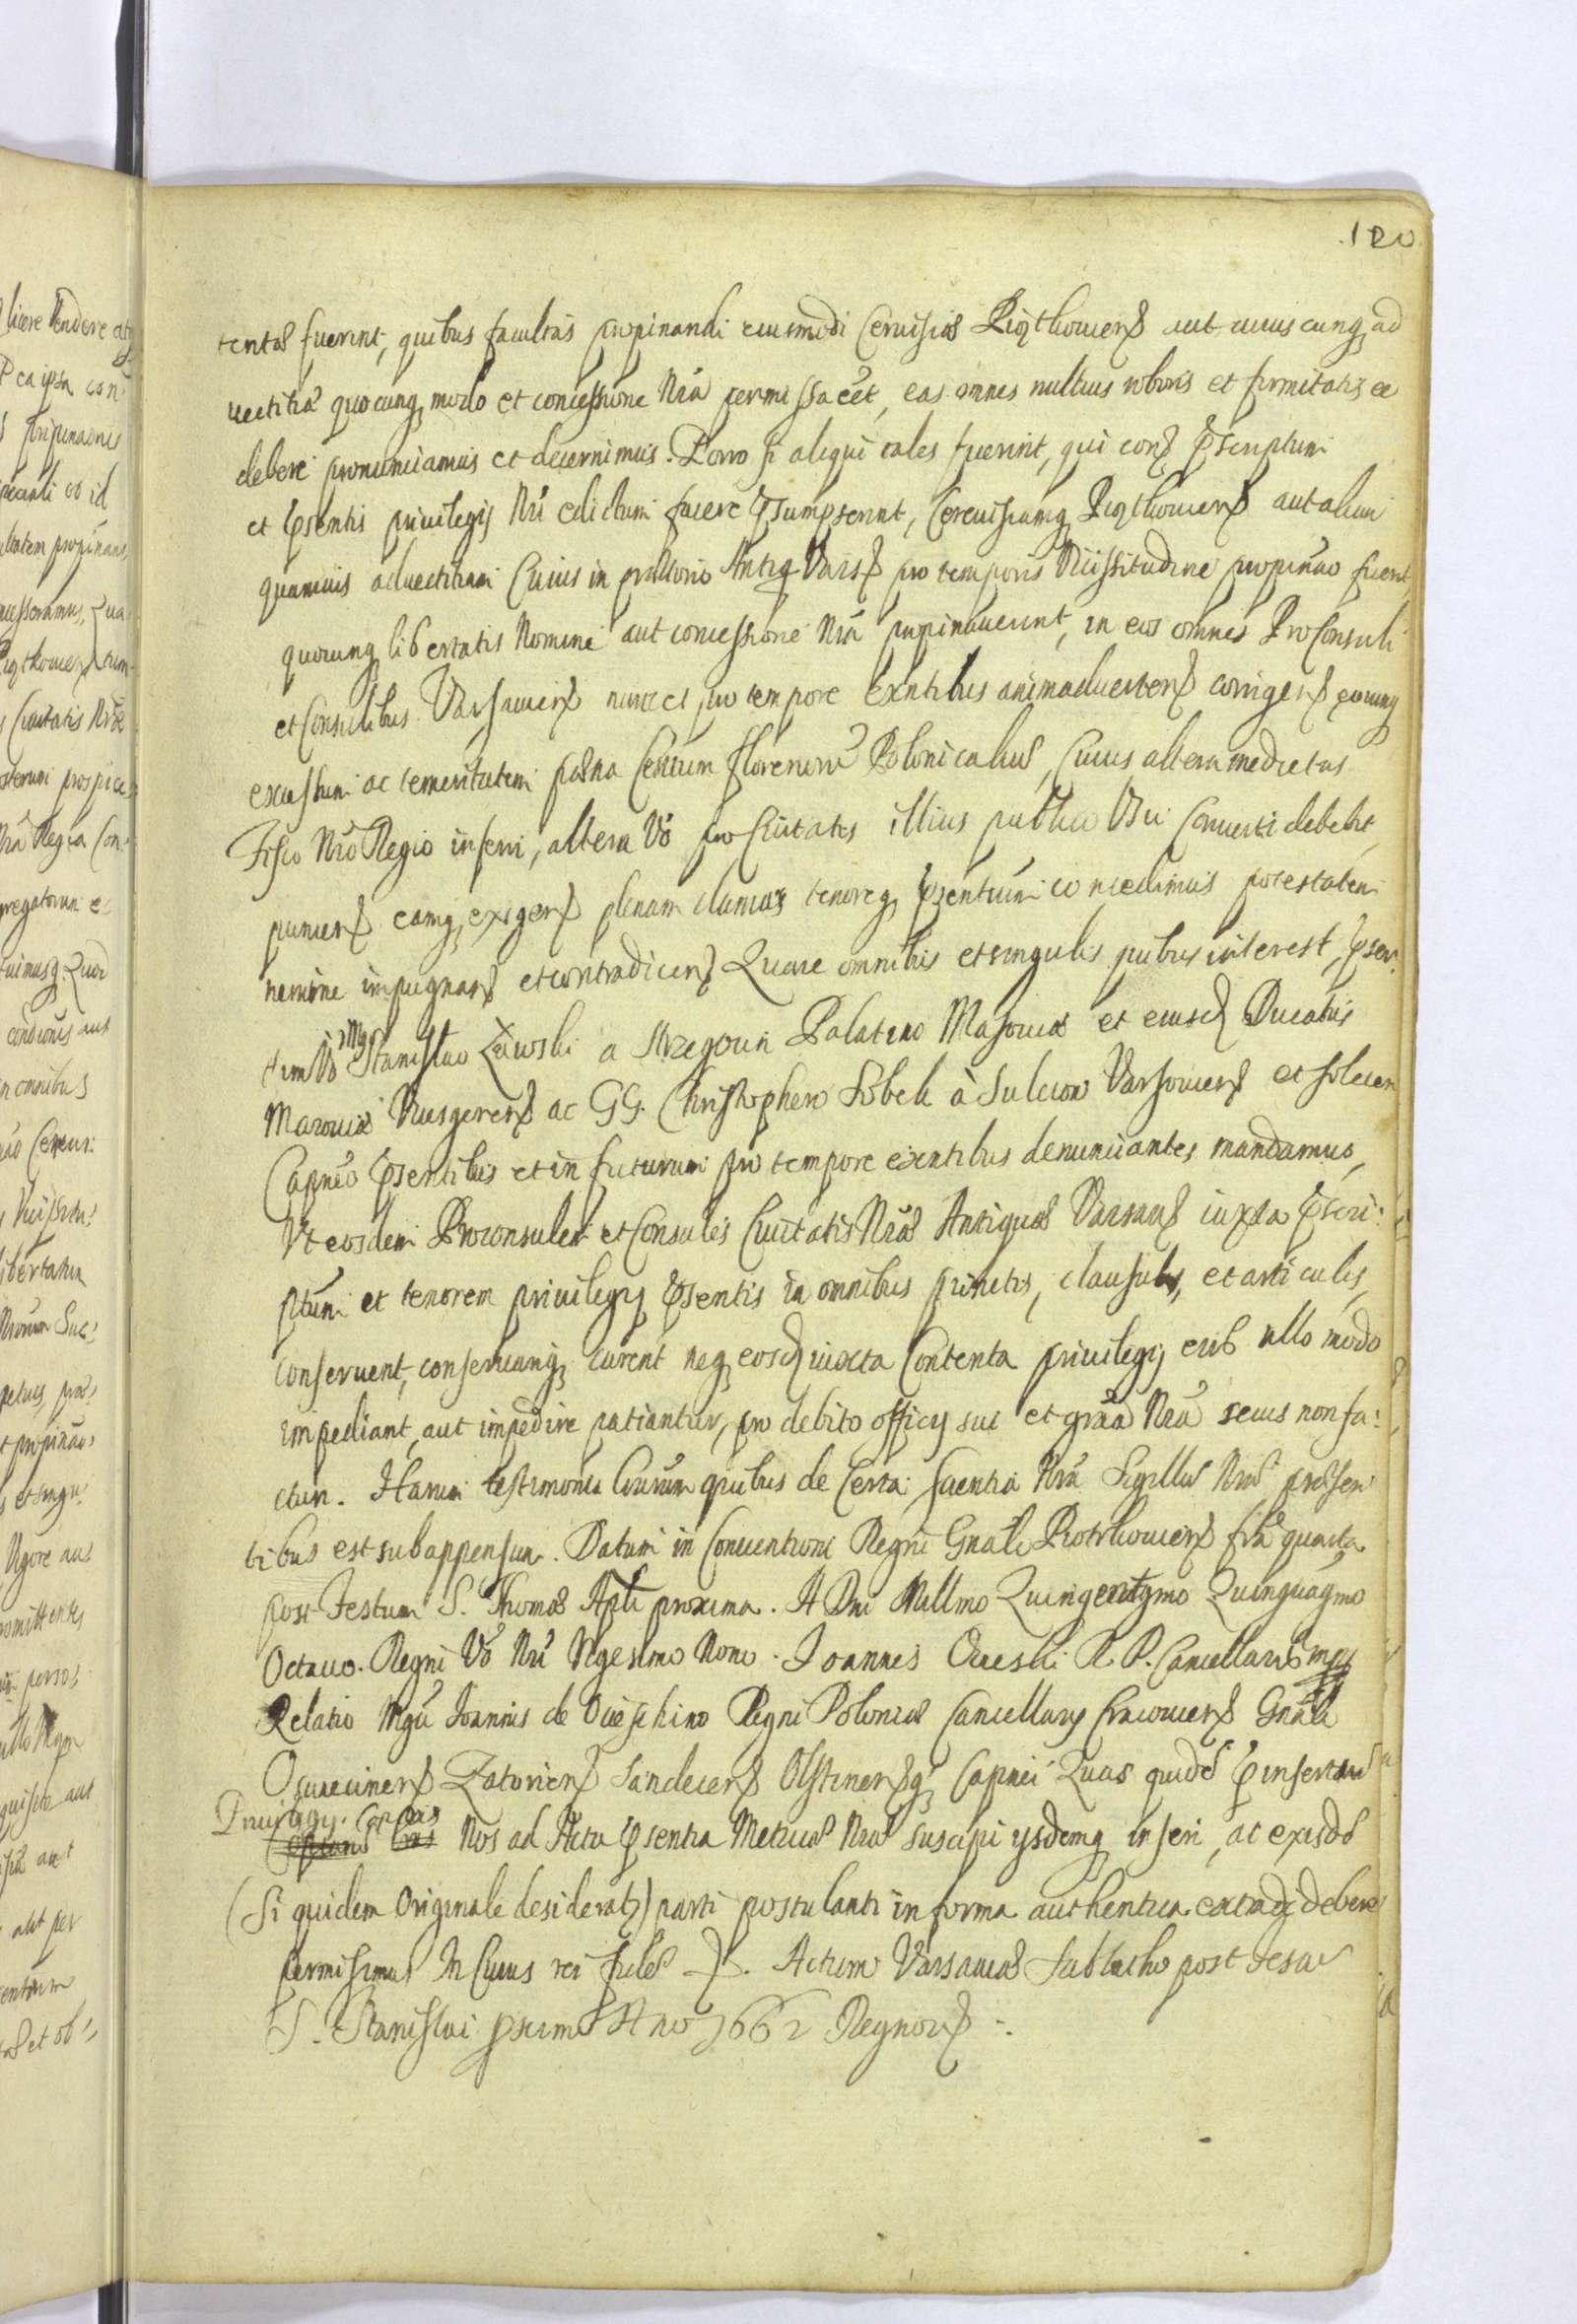 120
tentas fuerint, quibus facultas propinandi eiusmodi Ceruisias Piothoviens aut cuiuscunq, ad
vectitiã quocunq, modo et concessione Nrã permissa eet, eas omnes nullius roboris et firmitatis ee
debere pronunciamus et decernimus. Porro si aliqui tales fuerint, qui cons
et psentis privilegij Nri edictum facere psumpserint, Cereuisiamq Piotkouiens aut aliam
quamuis aduectitiam Cuius in prætorio Antiq Vars pro temporis Vicissitudine propinao fuerit,
quocunq libertatis Nomine aut concessione Nrã propinauerint, in eos omnes ProConsuli
et Consulibus Varsauiens nunc et pro tempore exntibus animaduertens corrigens eorumq
excessum ac temeritatem pæna Centum florenorũ Polonicaliũ, Cuius altera medietas
Fisco Nro Regio inferri, altera Vo pro Ciuitatis illius publico Vsui Conuerti debebit,
puniens eamq, exigens plenam damus tenoreq, psentium concedimus potestatem
nemine impugnans et contradicens Quare omnibus et singulis quibus interest, pser
tim Vo Mgco Stanislao Ławski a Strzegocin Palatino Masouiæ et eiusd Ducatus
Mazouiæ Vicesgerens ac GG. Christophero Sobek à Suleiow Varsouiens et solecen
Capneo psentibus et in futurum pro tempore exentibus denunciantes mandamus,
Vt eosdem Proconsules et Consules Ciuitatis Nræ Antiquæ Varsau iuxta pscri:
ptum et tenorem privilegij psentis in omnibus punctis, clausulis, et articulis,
conseruent, conseruariq, curent neq, eosd iuxta Contenta privilegij eius ullo modo
impediant, aut impedire patiantur, pro debito officij sui et grãa Nrã secus non fa:
ctur. Harum testimonio lrarum quibus de Certa scientia Nrã Sigillũ Nrũ præsen
tibus est subappensum. Datum in Conuentione Regni Gnali Piotrkouiens frã quarta
post Festum S. Thomæ Apli proxima. A Dni Millmo Quingentgmo Quinquagmo
Octauo. Regni Vo Nri Vigesimo Nono. Joannes Ocieski R. P. Cancellarius mpp
Relatio Mgci Joannis de Ocieschino Regni Poloniæ Cancellarij Cracouiens Gnali
Osuiecimens Zatoriens Sandecens Olstinensq, Capnei Quas quidẽ pinsertas
Priuilegij
Nos ad Acta psentia Metrices Nræ suscipi ysdemq inseri, ac exisdẽ
(Si quidem Originale desideratr) parti postulanti in forma authentica extradi debere
permisimus In Cuius rei fidẽ. Actum Varsauiæ Sabbatho post Festum
S. Stanislai pximũ Ano 1662 Regnor